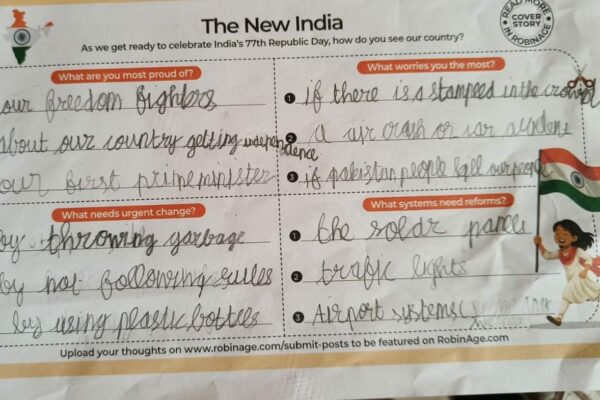 The New India
As we get ready to celebrate India's 77th Republic Day, how do you see our country?
READ MORE
COVER
STORY
IN ROBINAGE
What are you most proud of?
our freedom fighters
about our country getting independence
our first prime minister
What worries you the most?
1 if there is a stampeed in the crowd
2 a air crash or car
3 if pakistan people kill our people
What needs urgent change?
by throwing garbage
by not following rules
by using plastic bottles
What systems need reforms?
1 the
2 trafic lights
3 Airport systems
Upload your thoughts on www.robinage.com/submit-posts to be featured on RobinAge.com